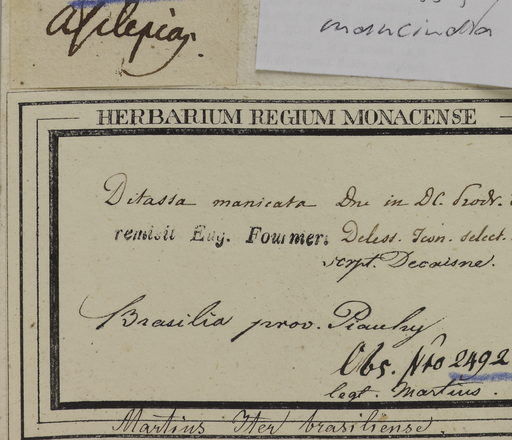 Asclepiaz.
mancindra
HERBARIUM REGIUM MONACENSE
Ditassa manicata Dne in DC. Prodr.
remisit Eug. Fournier. Deless. Icon. select.
script. Decaisne.
Brasilia prov. Piauhy
Obs. Nro 2492
legt. Martius.
Martius Iter brasiliense.